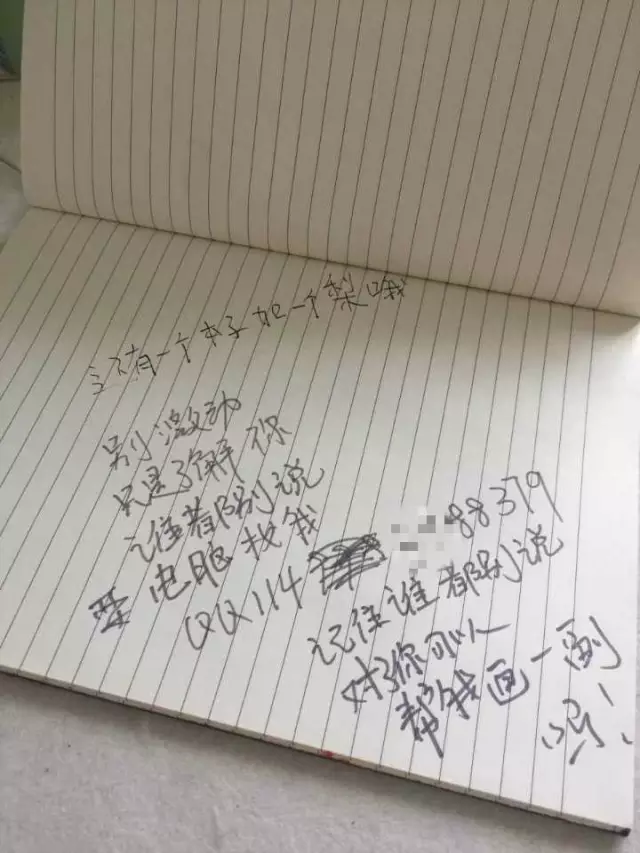 还有一个本子和一个梨哦
别激动
只是了解你
谁都别说
电脑找我
QQ114 88379
记住谁都别说
对了你可以
帮我画一副
吗!